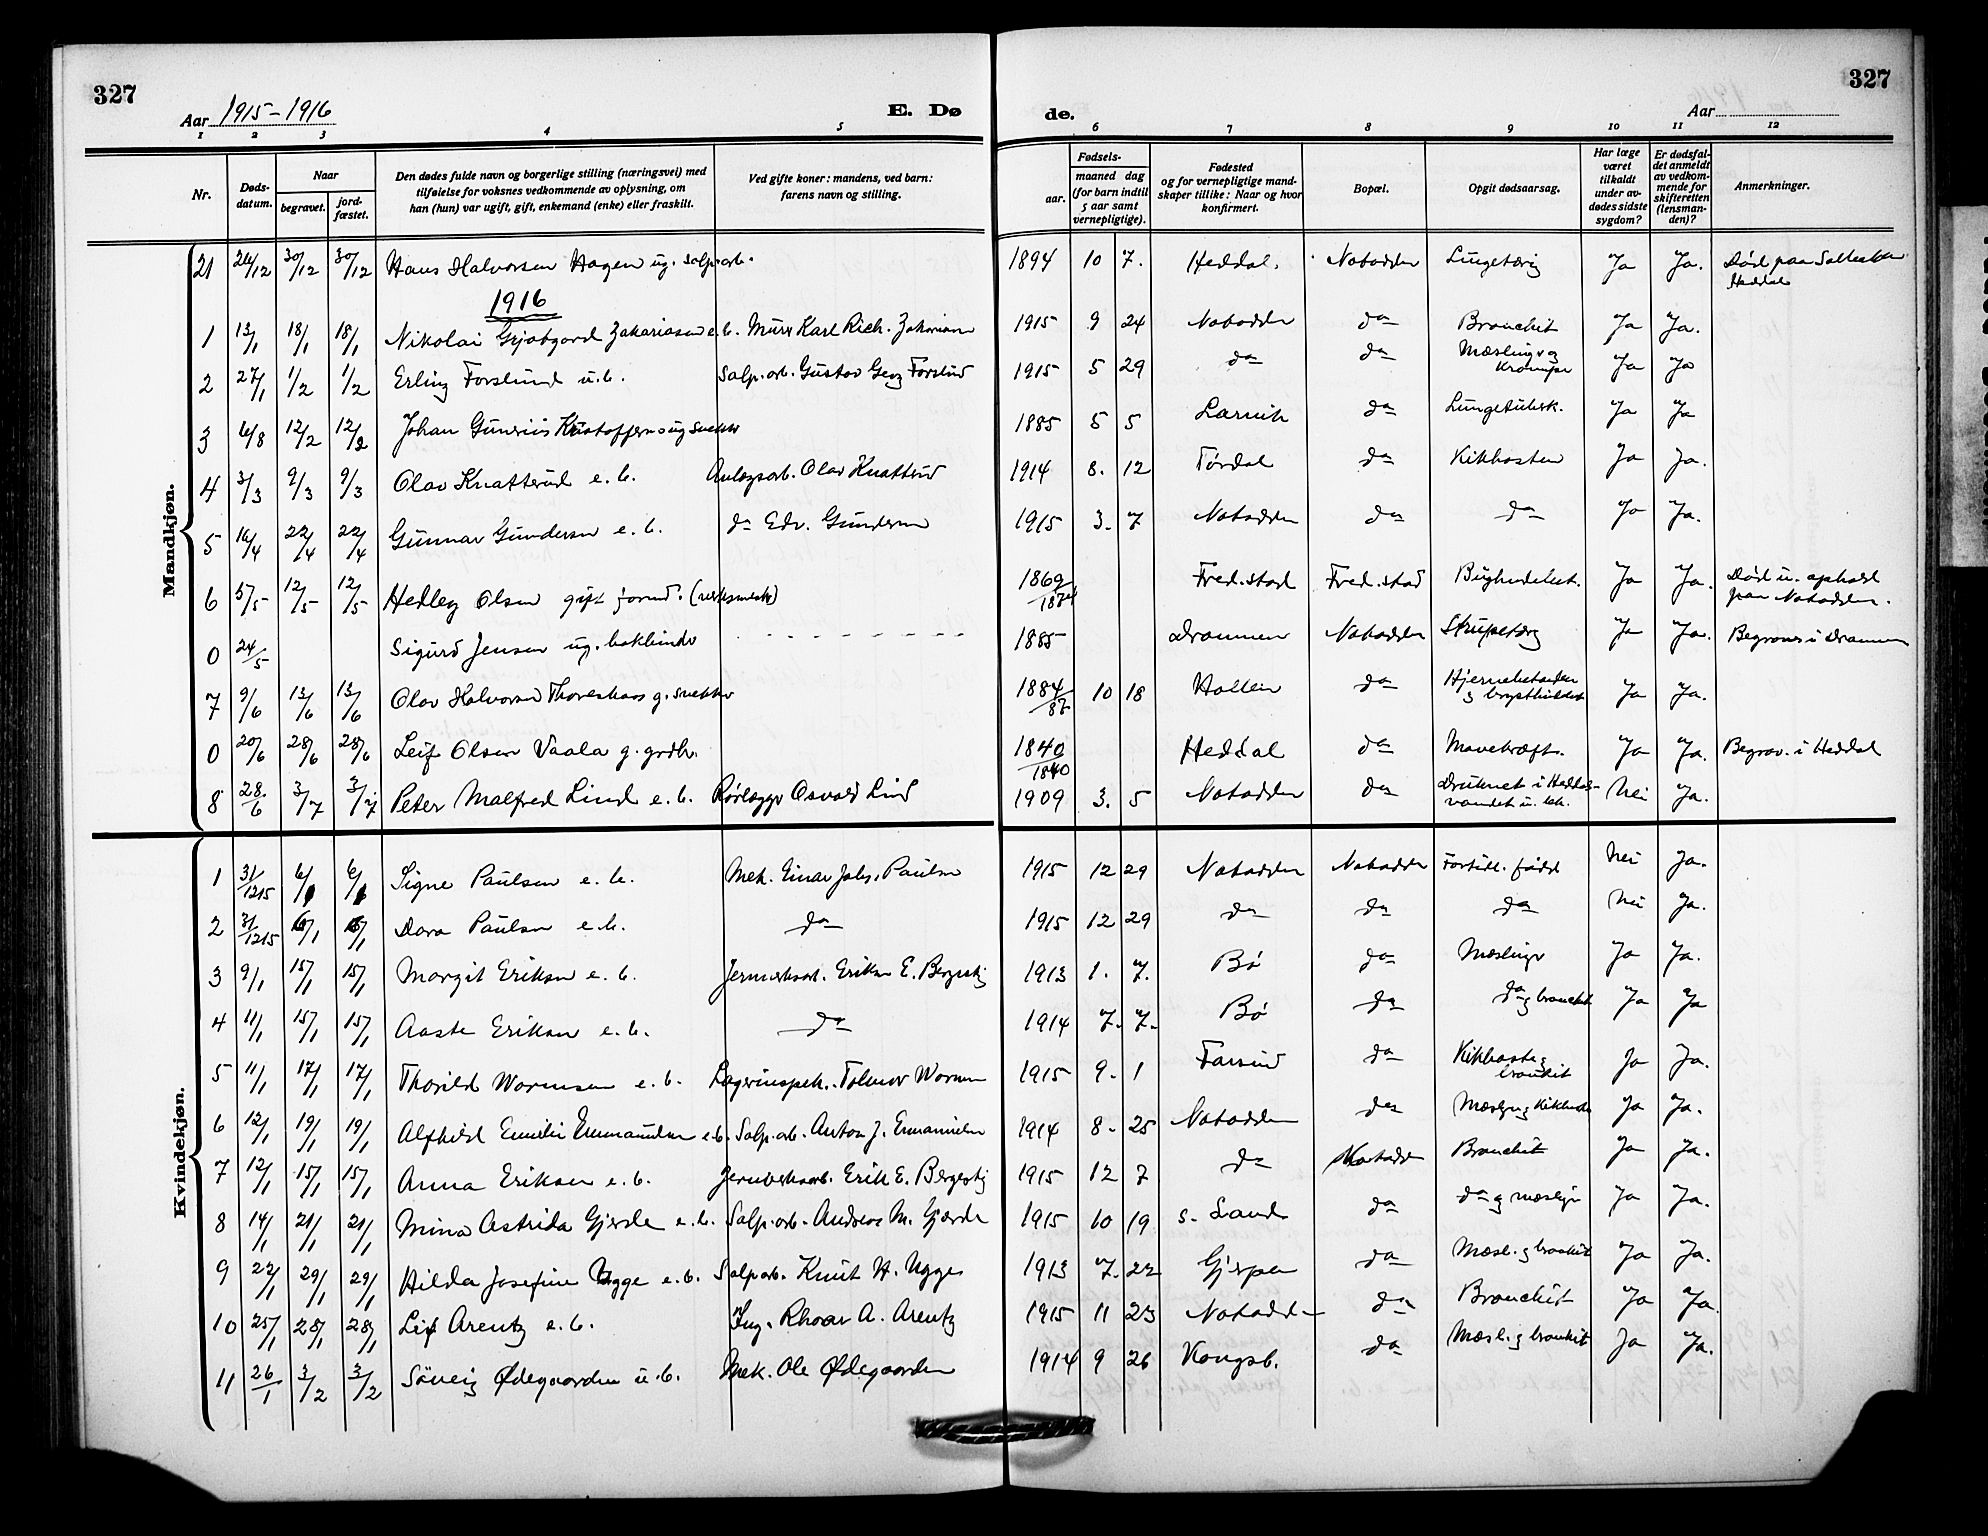 327
327
Aar 1915-1916
E. Dø
de.
Aar
1 2 3 4 5 6 7 8 9 10 11 12
Nr.
Døds-
datum.
Naar
begravet.
jord-
fæstet.
Den dødes fulde navn og borgerlige stilling (næringsvei) med
tilføielse for voksnes vedkommende av oplysning, om
han (hun) var ugift, gift, enkemand (enke) eller fraskilt.
Ved gifte koner: mandens, ved barn:
farens navn og stilling.
Fødsels-
aar.
maaned dag
(for barn indtil
5 aar samt
vernepligtige).
Fødested
og for vernepligtige mand-
skaper tillike: Naar og hvor
konfirmert.
Bopæl.
Opgit dødsaarsag.
Har læge
været
tilkaldt
under av-
dødes sidste
sygdom?
Er dødsfal-
det anmeldt
av vedkom-
mende for
skifteretten
(lensman-
den)?
Anmerkninger.
Mandkjøn.
21 24/12 30/12 30/12 Hans Halvorsen Hagen ug. salp.arb. 1894 10 7. Heddal. Notodden Lungetæring Ja Ja. Død paa
Heddal
1916
1 13/1 18/1 18/1 Nikolai Zakariasen e.b. Murer Karl Rich. 1915 9 24 Notodden do Bronchit Ja Ja.
2 27/1 1/2 1/2 Erling Forslund u.b. Salp.arb. Gustav Forslund 1915 5 29 do do Mæslinger og
Ja Ja
3 6/8 12/2 12/2 Johan ug snekker 1885 5 5 Larvik do Lungetuberk. Ja Ja
4 3/3 9/3 9/3 Olav Knatterud e.b. Anlægsarb. Olav Knatterud 1914 8. 12 Tørdal do Kikhosten Ja Ja.
5 16/4 22/4 22/4 Gunnar Gundersen e.b. do Edv. Gundersen 1915 3. 7 Notodden do do Ja Ja.
6 5/5 12/5 12/5 Hedley Olsen gift formd. 1869 Fred.stad Fred.stad Ja Ja. Død u. ophold
paa Notodden.
0 24/5 Sigurd Jensen ug. bokbinder - - - - - - - - 1885 Drammen Notodden Strupetæring Ja Ja. Begraves i Drammen
7 9/6 13/6 13/6 Olav Halvorsen g. snekker 1884/87 10 18 Hollen do
Ja Ja.
0 20/6 28/6 28/6 Leif Olsen Vaala g. grdbr. 1840/1840 Heddal do Mavekræft. Ja Ja. Begrav. i Heddal
8 28/6 3/7 3/7 Peter Malfred Lind e.b. Rørlægger Osvald Lind 1909 3. 5 Notodden do Druknet i Heddals-
vandet Nei Ja.
Kvindekjøn.
1 31/12 15 6/1 6/1 Signe Paulsen e.b. Mek. Einar Johs. Paulsen 1915 12 29 Notodden Notodden Fortidl. født Nei Ja.
2 31/12 15 6/1 6/1 Dora Paulsen e.b. do 1915 12 29 do do do Nei Ja.
3 9/1 15/1 15/1 Margit Eriksen e.b. 1913 1. 7. Bø do Mæslinger Ja Ja.
4 11/1 15/1 15/1 Aaste Eriksen e.b. do 1914 7. 7. Bø do do og bronchit Ja Ja
5 11/1 17/1 17/1 Thorild Wormsen e.b. Lagerinspek. 1915 9. 1 Farsund do Kikhoste og
bronkit Ja Ja.
6 12/1 19/1 19/1 Alfhild Emilie Emmanuelsen e.b. Salp.arb. Anton J. Emanuelsen 1914 8. 25 Notodden do Ja Ja.
7 12/1 15/1 15/1 Anna Eriksen e.b. Erik E. 1915 12 7 do Notodden Bronchit Ja Ja.
8 14/1 21/1 21/1 Mina Astrida Gjerde e.b. Salp.arb. Andreas M. Gjerde 1915 10 19 S. Land do do og mæslinger Ja Ja.
9 22/1 29/1 29/1 Hilda Josefine Ugge e.b. Salp.arb. Knut H. Ugge 1913 7. 22 Gjerpen do Mæsl. og bronkit Ja Ja.
10 25/1 28/1 28/1 Leif Arentz e.b. Ing. Rhoar A. Arentz 1915 11 23 Notodden do Bronchit Ja Ja.
11 26/1 3/2 3/2 Solveig Ødegaarden u.b. Mek. Ole Ødegaarden 1914 9 26 Kongsb. do Mæsl. og bronkit Ja Ja.